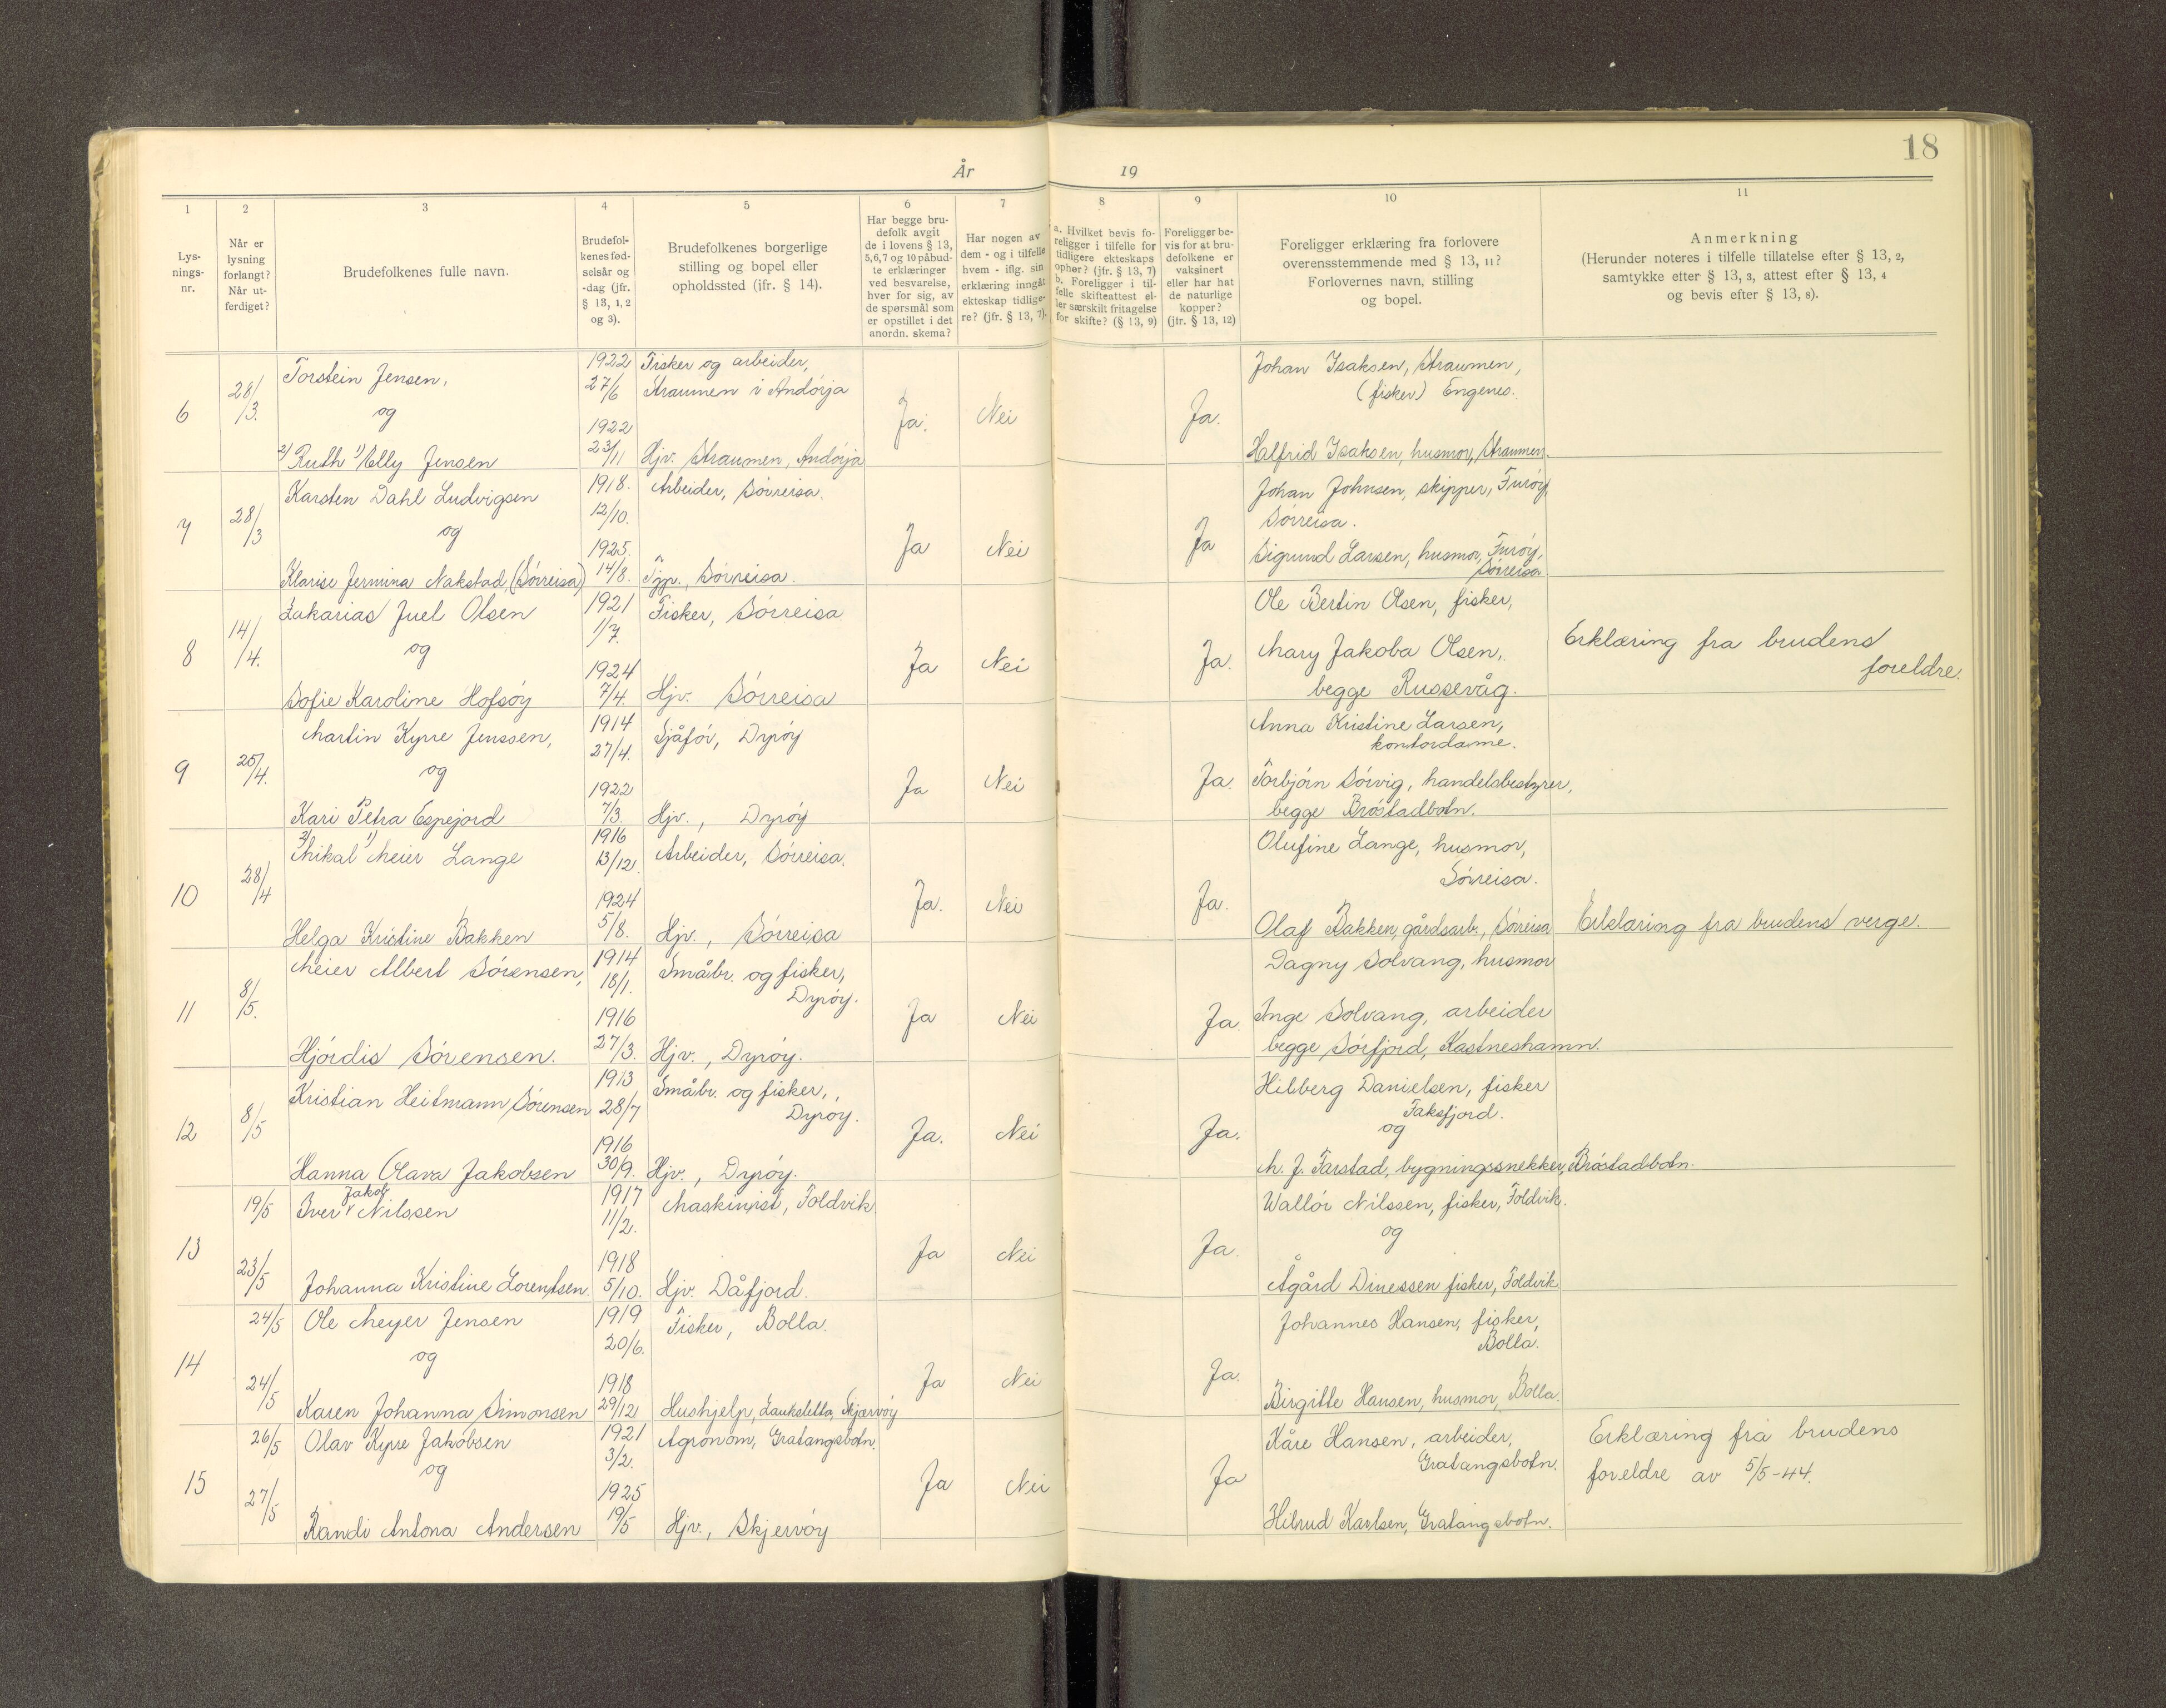 18
År 19
1 2 3 4 5 6 7 8 9 10 11
Lys-
nings-
nr.
Når er
lysning
forlangt?
Når ut-
ferdiget?
Brudefolkenes fulle navn.
Brudefol-
kenes fød-
selsår og
-dag (jfr.
§ 13, 1, 2
og 3).
Brudefolkenes borgerlige
stilling og bopel eller
opholdssted (ifr. § 14).
Har begge bru-
defolk avgit
de i lovens § 13,
5,6,7 og 10 påbud-
te erklæringer
ved besvarelse,
hver for sig, av
de spørsmål som
er opstillet i det
anordn. skema?
Har nogen av
dem - og i tilfelle
hvem - iflg. sin
erklæring inngåt
ekteskap tidlige-
re? (jfr. § 13, 7).
a. Hvilket bevis fo-
religger i tilfelle for
tidligere ekteskaps
ophør? (jfr. § 13, 7)
b. Foreligger i til-
felle skifteattest el-
ler særskilt fritagelse
for skifte? (§ 13, 9)
Foreligger be-
vis for at bru-
defolkene er
vaksinert
eller har hat
de naturlige
kopper?
(jfr. § 13, 12)
Foreligger erklæring fra forlovere
overensstemmende med § 13, 11?
Forlovernes navn, stilling
og bopel.
Anmerkning
(Herunder noteres i tilfelle tillatelse efter § 13, 2,
samtykke efter § 13, 3, attest efter § 13, 4
og bevis efter § 13, 8).
6
28/3.
Torstein Jensen,
og
2) Ruth 1) Elly Jensen
1922
27/6
1922
23/11
Fisker og arbeider,
Straumen i Andørja
Hjv. Straumen, Andørja
Ja.
Nei
Ja.
Johan Isaksen, Straumen,
(fisker) Engenes.
Halfrid Isaksen, husmor, Straumen
7
28/3
Karsten Dahl Ludvigsen
og
Klarise Jermina Nakstad, (Sørreisa)
1918.
12/10.
1925.
14/8.
Arbeider, Sørreisa.
Tjp., Sørreisa.
Ja
Nei
Ja
Johan Johnsen, skipper, Furøy,
Sørreisa.
Sigrund Larsen, husmor, Furøy,
Sørreisa
8
14/4.
Zakarias Juel Olsen
og
Sofie Karoline Hofsøy
1921
1/7.
1924
7/4.
Fisker, Sørreisa
Hjv. Sørreisa
Ja
Nei
Ja.
Ole Bertin Olsen, fisker,
Mary Jakoba Olsen,
begge Russevåg.
Erklæring fra brudens
foreldre.
9
25/4.
Martin Kyrre Jenssen,
og
Kari Petra Espejord
1914
27/4.
1922
7/3.
Sjåfør, Dyrøy
Hjv., Dyrøy
Ja
Nei
Ja.
Anna Kristine Larsen,
kontordame.
Torbjørn Sørvig, handelsbestyrer,
begge Brøstadbotn.
10
28/4
2) Mikal 1) Meier Lange
Helga Kristine Bakken
1916
13/12.
1924
5/8.
Arbeider, Sørreisa.
Hjv., Sørreisa
Ja.
Nei
Ja.
Olufine Lange, husmor,
Sørreisa.
Olaf Bakken, gårdsarb., Sørreisa
Erklæring fra brudens verge.
11
8/5.
Meier Albert Sørensen,
Hjørdis Sørensen.
1914
18/1.
1916
27/3.
Småbr. og fisker,
Dyrøy.
Hjv., Dyrøy.
Ja
Nei
Ja
Dagny Solvang, husmor
Inge Solvang, arbeider
begge Sørfjord, Kastneshamn.
12
8/5
Kristian Heitmann Sørensen
Hanna Olava Jakobsen
1913
28/7
1916
30/9.
Småbr. og fisker,
Dyrøy.
Hjv., Dyrøy.
Ja.
Nei
Ja.
Hilberg Danielsen, fisker
Faksfjord.
og
M. J. Farstad, bygningssnekker, Brøstadbotn.
13
19/5
23/5
Jakob
Iver Nilssen
Johanna Kristine Lorentsen.
1917
11/2.
1918
5/10.
Maskinist, Foldvik
Hjv. Dåfjord.
Ja
Nei
Ja.
Wallór Nilssen, fisker, Foldvik.
og
Ågård Dinessen fisker, Foldvik
14
24/5
24/5
Ole Meyer Jensen
og
Karen Johanna Simonsen
1919
20/6.
1918
29/12
Fisker, Bolla.
Hushjelp, Laukslitta, Skjærvøy
Ja
Nei
Ja.
Johannes Hansen, fisker,
Bolla.
Birgitte Hansen, husmor, Bolla.
15
26/5
27/5
Olav Kyrre Jakobsen
og
Randi Antona Andersen
1921
3/2.
1925
19/5
Agronom, Gratangsbotn.
Hjv., Skjervøy
Ja
Nei
Ja
Kåre Hansen, arbeider,
Gratangsbotn.
Hilrud Karlsen, Gratangsbotn.
Erklæring fra brudens
foreldre av 5/5-44.